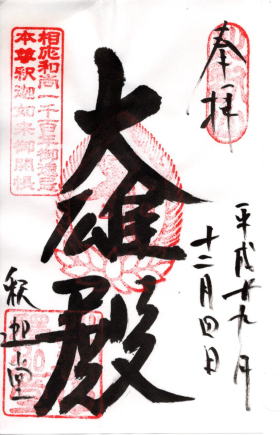 奉拝
平成廿九年
十二月四日
大雄殿
釈迦堂
相応和尚一千百年御遠忌
本尊釈迦如来御開帳